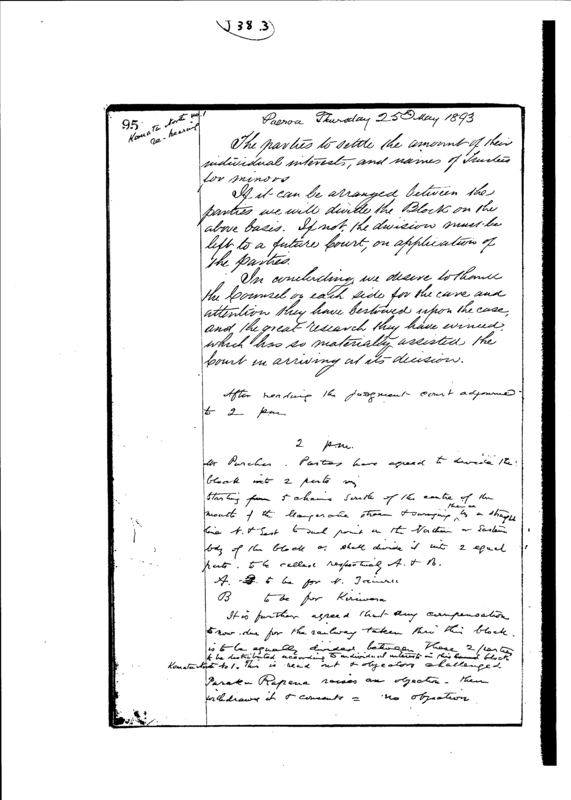 J 38.3
95
Komata North No 1
re-hearing
Paeroa Thursday 25 May 1893
The parties to settle the amount of their
individual interests, and names of Trustees
for minors
If it can be arranged between the
parties we will divide the Block on the
above basis. If not, the division must be
left to a future Court, on application of
the parties.
In concluding, we desire to thank
the Counsel on each side for the care and
attention they have bestowed upon the case,
and the great research they have evinced
which has so materially assisted the
Court in arriving at its decision.
After reading the judgment court adjourned
to 2 pm
2 pm.
Mr Porcher. Parties have agreed to divide the
block into 2 parts
Starting from 5 chains South of the centre of the
mouth of the stream &
thence by a straight
line N. & East to such point on the Northern or Eastern
bdy of the block as shall divide it into 2 equal
parts. to be called respectively A. & B.
A. to be for N.
B to be for Kiriwera
It is further agreed that any compensation
now due for the railway taken thro this block
is to be equally divided between these 2 parties
& be distributed according to individual interests in this block
Komata North No 1. This is read out & objectors challenged
Ropena raises an objection - then
withdraws it & consents = no objection